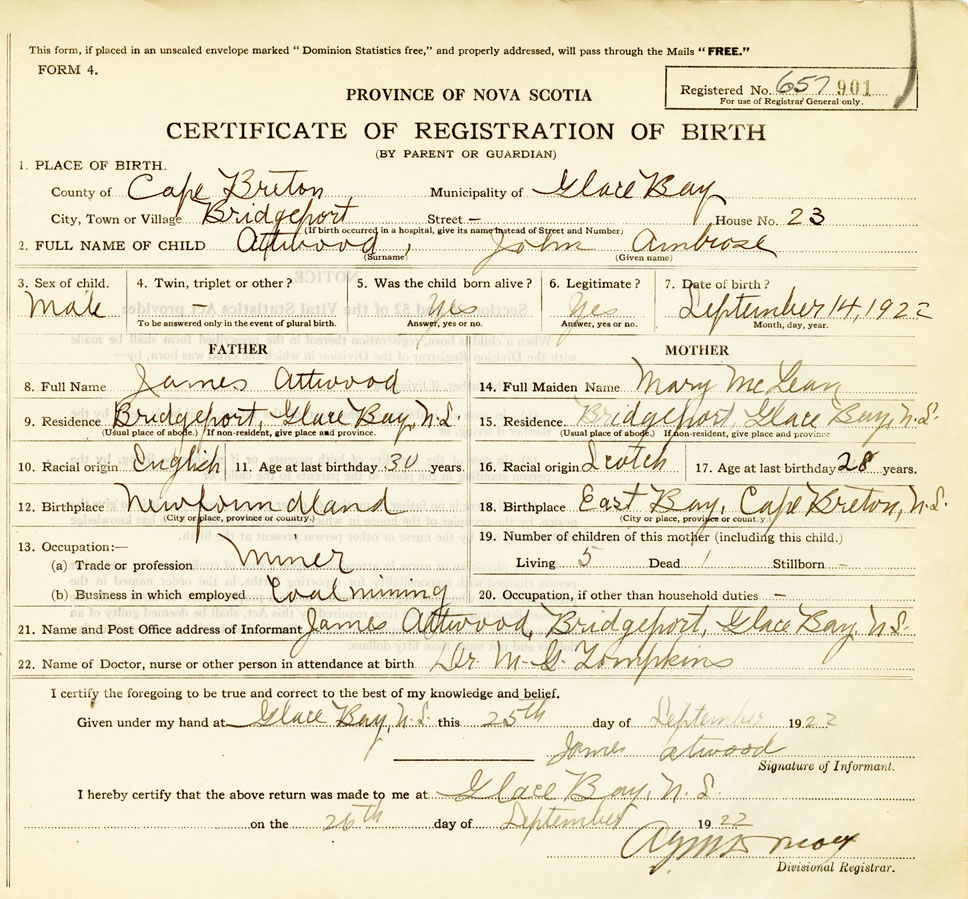 This form, if placed in an unsealed envelope marked "Dominion Statistics free," and properly addressed, will pass through the Mails "FREE."
FORM 4.
Registered No. 657 901
For use of Registrar General only.
PROVINCE OF NOVA SCOTIA
CERTIFICATE OF REGISTRATION OF BIRTH
(BY PARENT OR GUARDIAN)
1. PLACE OF BIRTH.
County of Cape Breton Municipality of Glace Bay
City, Town or Village Bridgeport Street — House No. 23
(If birth occurred in a hospital, give its name instead of Street and Number)
2. FULL NAME OF CHILD Attwood, John Ambrose
(Surname) (Given name)
3. Sex of child. 4. Twin, triplet or other? 5. Was the child born alive? 6. Legitimate? 7. Date of birth?
Male — Yes Yes September 14, 1922
To be answered only in the event of plural birth. Answer, yes or no. Answer, yes or no. Month, day, year.
FATHER MOTHER
8. Full Name James Attwood 14. Full Maiden Name Mary McLean
9. Residence Bridgeport, Glace Bay, N.S. 15. Residence. Bridgeport, Glace Bay, N.S.
(Usual place of abode.) If non-resident, give place and province. (Usual place of abode.) If non-resident, give place and province
10. Racial origin English 11. Age at last birthday 30 years. 16. Racial origin Scotch 17. Age at last birthday 28 years.
12. Birthplace Newfoundland 18. Birthplace East Bay, Cape Breton, N.S.
(City or place, province or country.) (City or place, province or country.)
13. Occupation:— 19. Number of children of this mother (including this child.)
(a) Trade or profession Miner Living 5 Dead 1 Stillborn -
(b) Business in which employed Coal mining 20. Occupation, if other than household duties —
21. Name and Post Office address of Informant James Attwood, Bridgeport, Glace Bay, N.S.
22. Name of Doctor, nurse or other person in attendance at birth Dr. M. G. Tompkins
I certify the foregoing to be true and correct to the best of my knowledge and belief.
Given under my hand at Glace Bay, N.S. this 25th day of September 1922
James Atwood
Signature of Informant.
I hereby certify that the above return was made to me at Glace Bay, N.S.
on the 26th day of September 1922
Divisional Registrar.